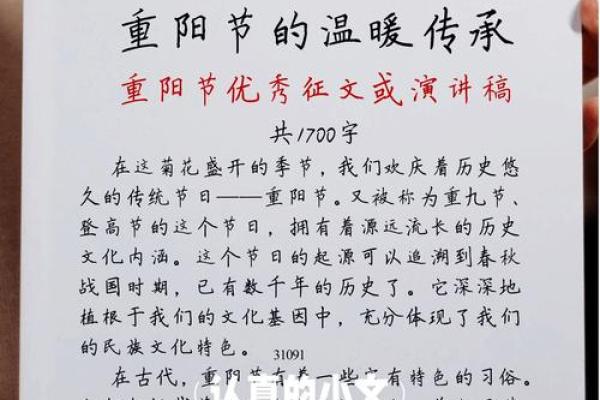 重阳节的温暖传承
重阳节优秀征文或演讲稿
共1700字
在这菊花盛开的季节，我们欢庆着历史悠
久的传统节日——重阳节。又被称为重九节、
登高节的这个节日，拥有着源远流长的历史
文化内涵。这个节日的起源可以追溯到春秋
战国时期，已有数千年的历史了。它深深地
植根于我们的文化基因中，充分体现了我们
的民族文化特色。
31091
在古代，重阳节有着一些它有特色的习俗。
认真的小文